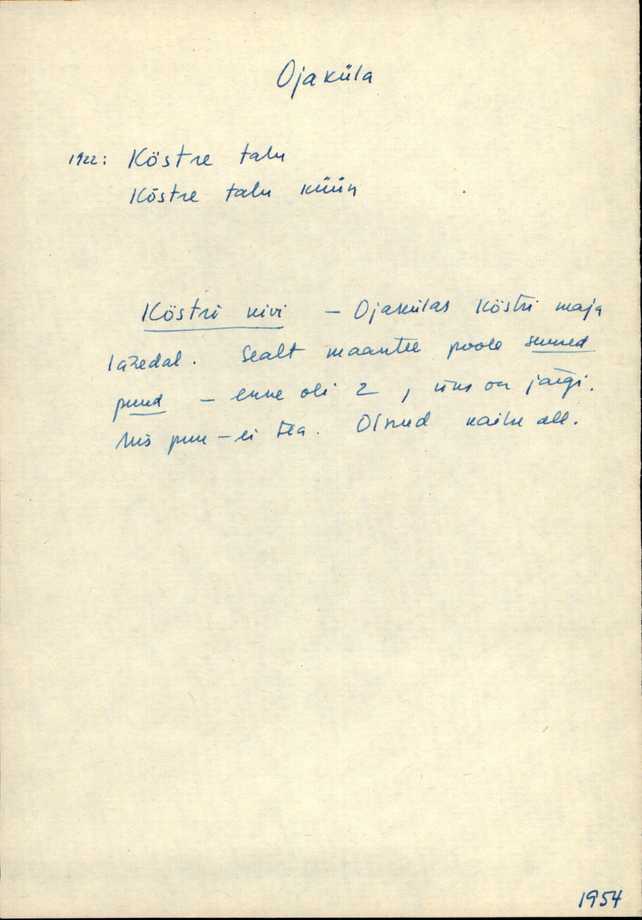 Ojaküla
1922: Köstre talu
Köstre talu küün
Köstri kivi – Ojakülas Köstri maja
lähedal. Sealt maantee poole suured
puud – enne oli 2, üks on järgi.
Mis puu – ei tea. Olnud kaitse all.
1954